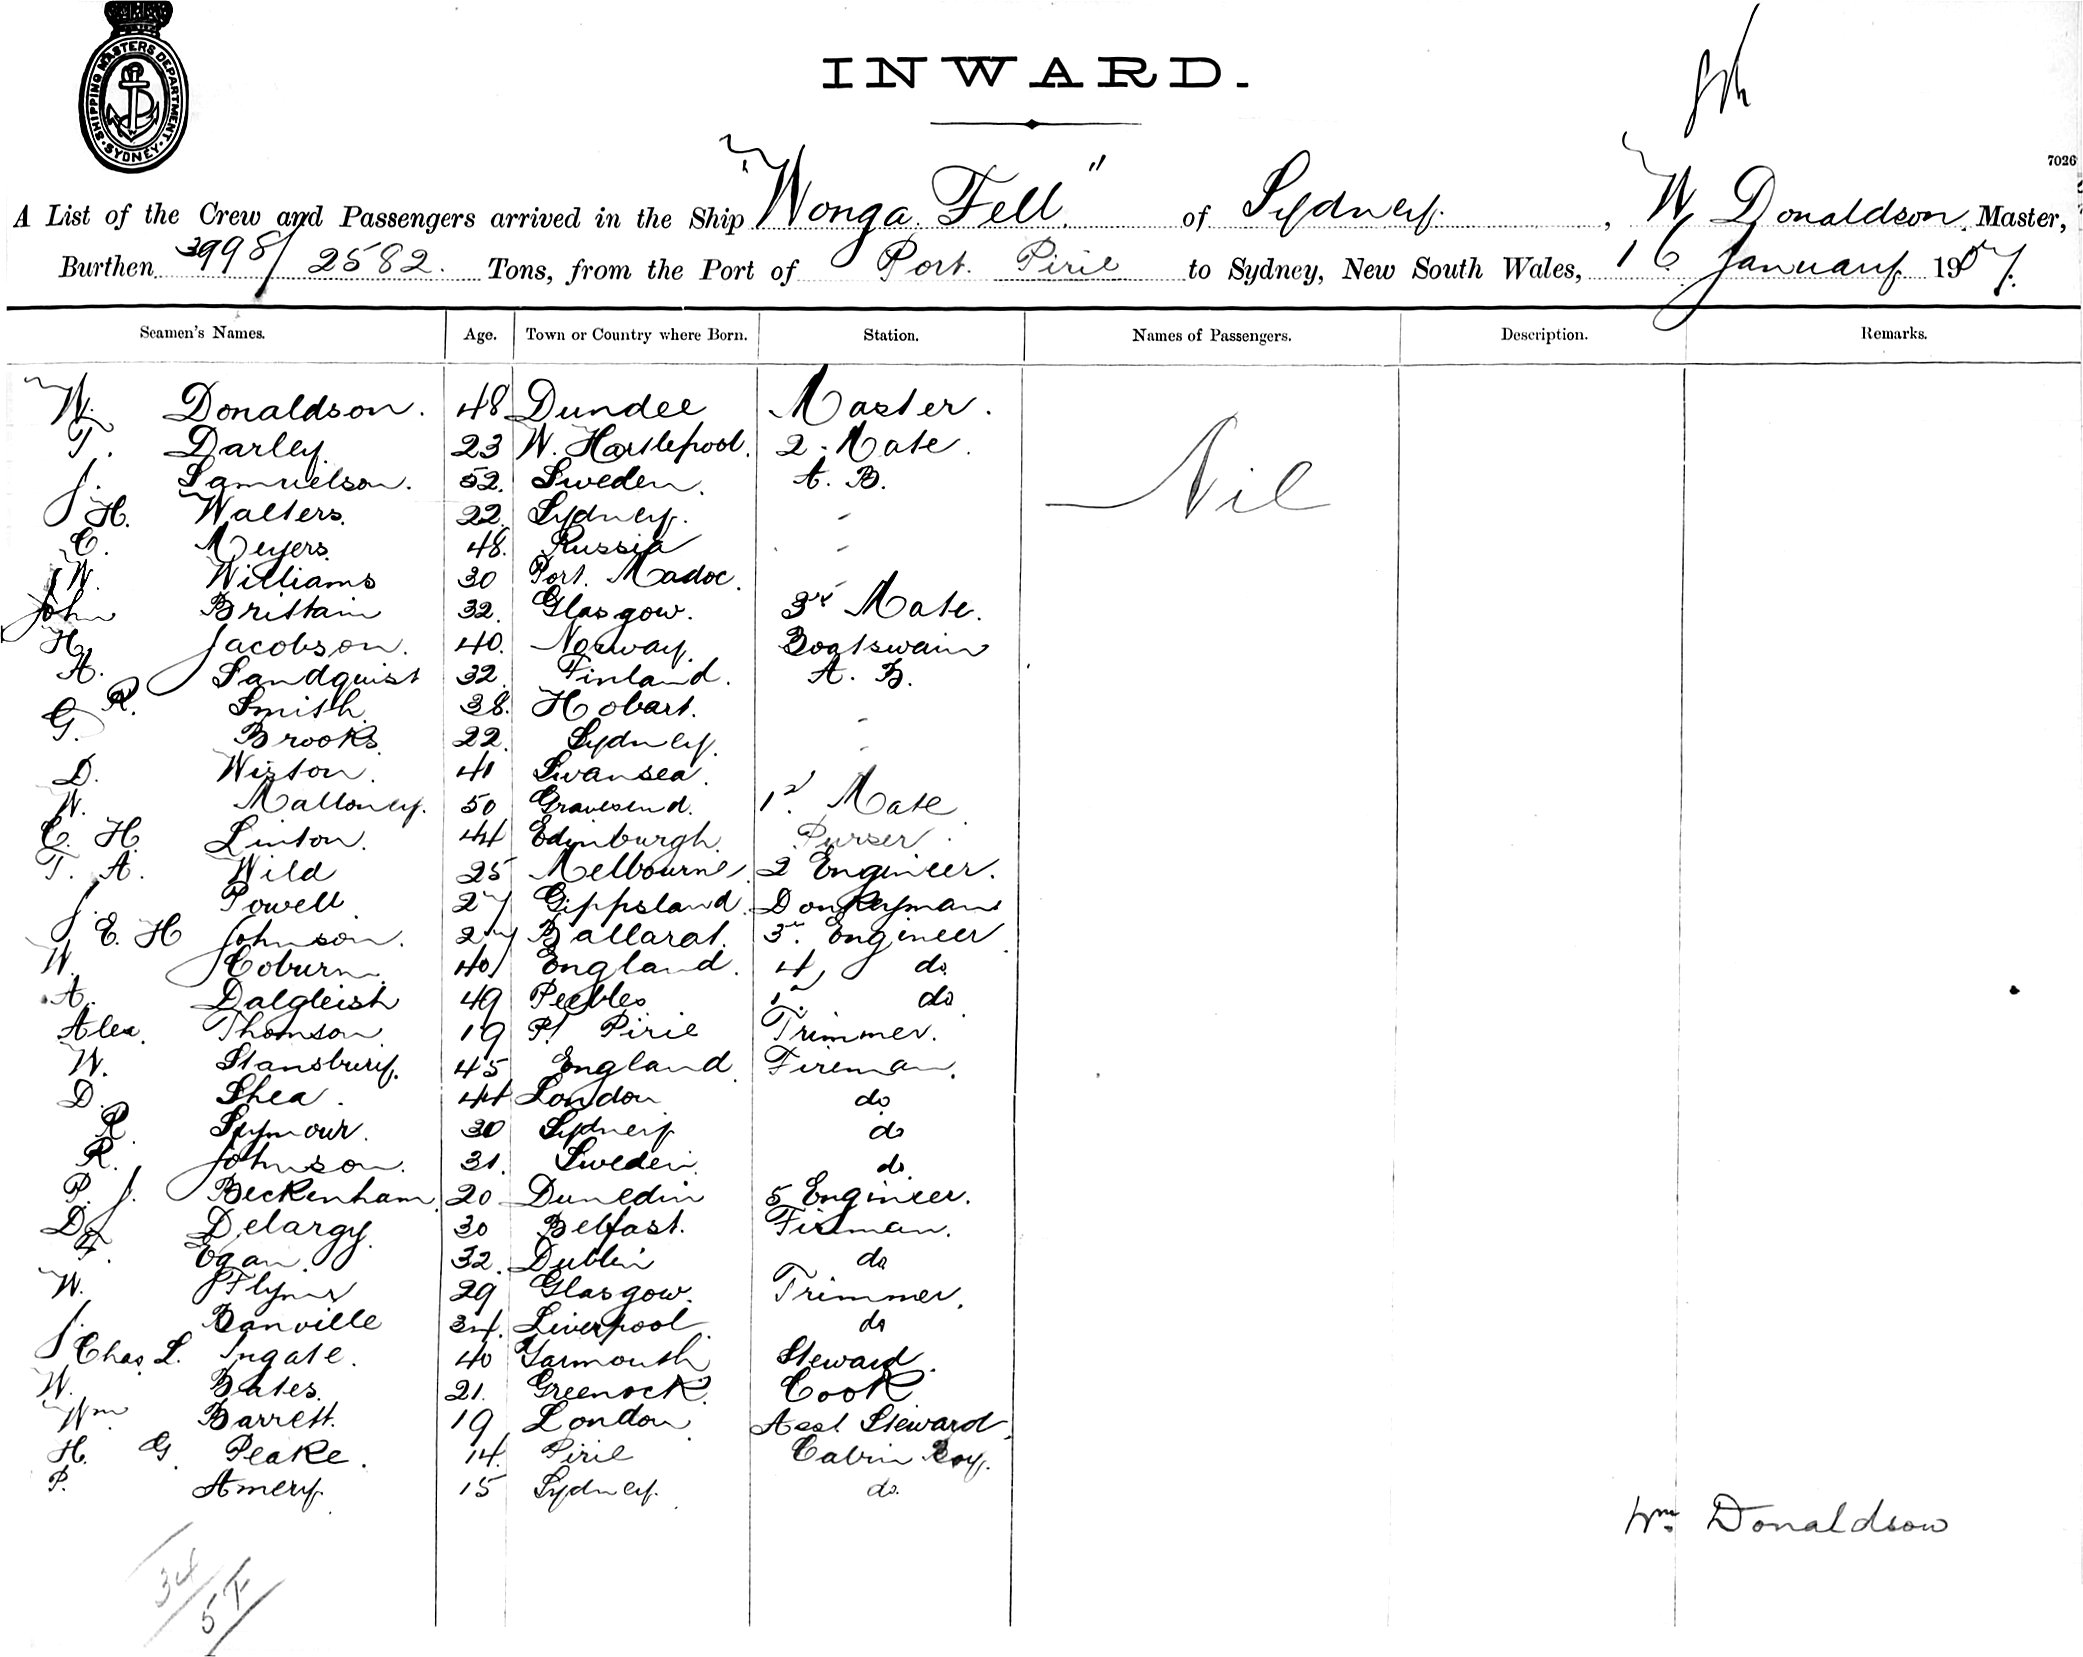 SHIPPING MASTERS DEPARTMENT · SYDNEY ·
INWARD.
7026
A List of the Crew and Passengers arrived in the Ship "Wonga Fell" of Sydney, W Donaldson Master,
Burthen 3998/2582. Tons, from the Port of Port Pirie to Sydney, New South Wales, 16 January 1907.
Seamen's Names. Age. Town or Country where Born. Station. Names of Passengers. Description. Remarks.
W. Donaldson. 48 Dundee Master.
T. Darley. 23 W. Hartlepool. 2. Mate. Nil
J. Samuelson. 52. Sweden. A. B.
H. Walters. 22. Sydney. "
C. Meyers. 48. Russia "
W. Williams 30 Port. Madoc. "
John Brittain 32. Glasgow. 3rd Mate.
H. Jacobson. 40. Norway. Boatswain
A. Sandquist 32. Finland. A. B.
R. Smith 38. Hobart. "
G. Brooks. 22. Sydney. "
D. Wiston. 41 Swansea.
W. Malloney. 50 Gravesend. 1st Mate
C. H. Linton. 44 Edinburgh. Purser.
T. A. Wild 25 Melbourne. 2 Engineer.
J. Powell 27 Gippsland. Donkeyman
E. H Johnson. 27 Ballarat. 3rd Engineer
W. Coburn. 40 England. 4, do
A. Dalgleish 49 Peebles 1st do
Alex. Thomson. 19 Pt Pirie Trimmer.
W. Stansbury. 45 England. Fireman.
D. Shea. 44 London do
R. Seymour. 30 Sydney do
R. Johnson. 31. Sweden. do.
P. J. Beckenham. 20 Dunedin 5 Engineer.
D. Delargy. 30 Belfast. Fireman.
Egan. 32. Dublin do
W. Flynn 29 Glasgow. Trimmer.
J. Banville 34. Liverpool. do
Chas. L. Ingate. 40 Yarmouth Steward.
W. Bates. 21. Greenock. Cook
Wm Barrett. 19 London. Asst Steward.
H. G. Peake. 14. Pirie Cabin Boy.
P. Amery. 15 Sydney. do.
Wm. Donaldson
34
5F